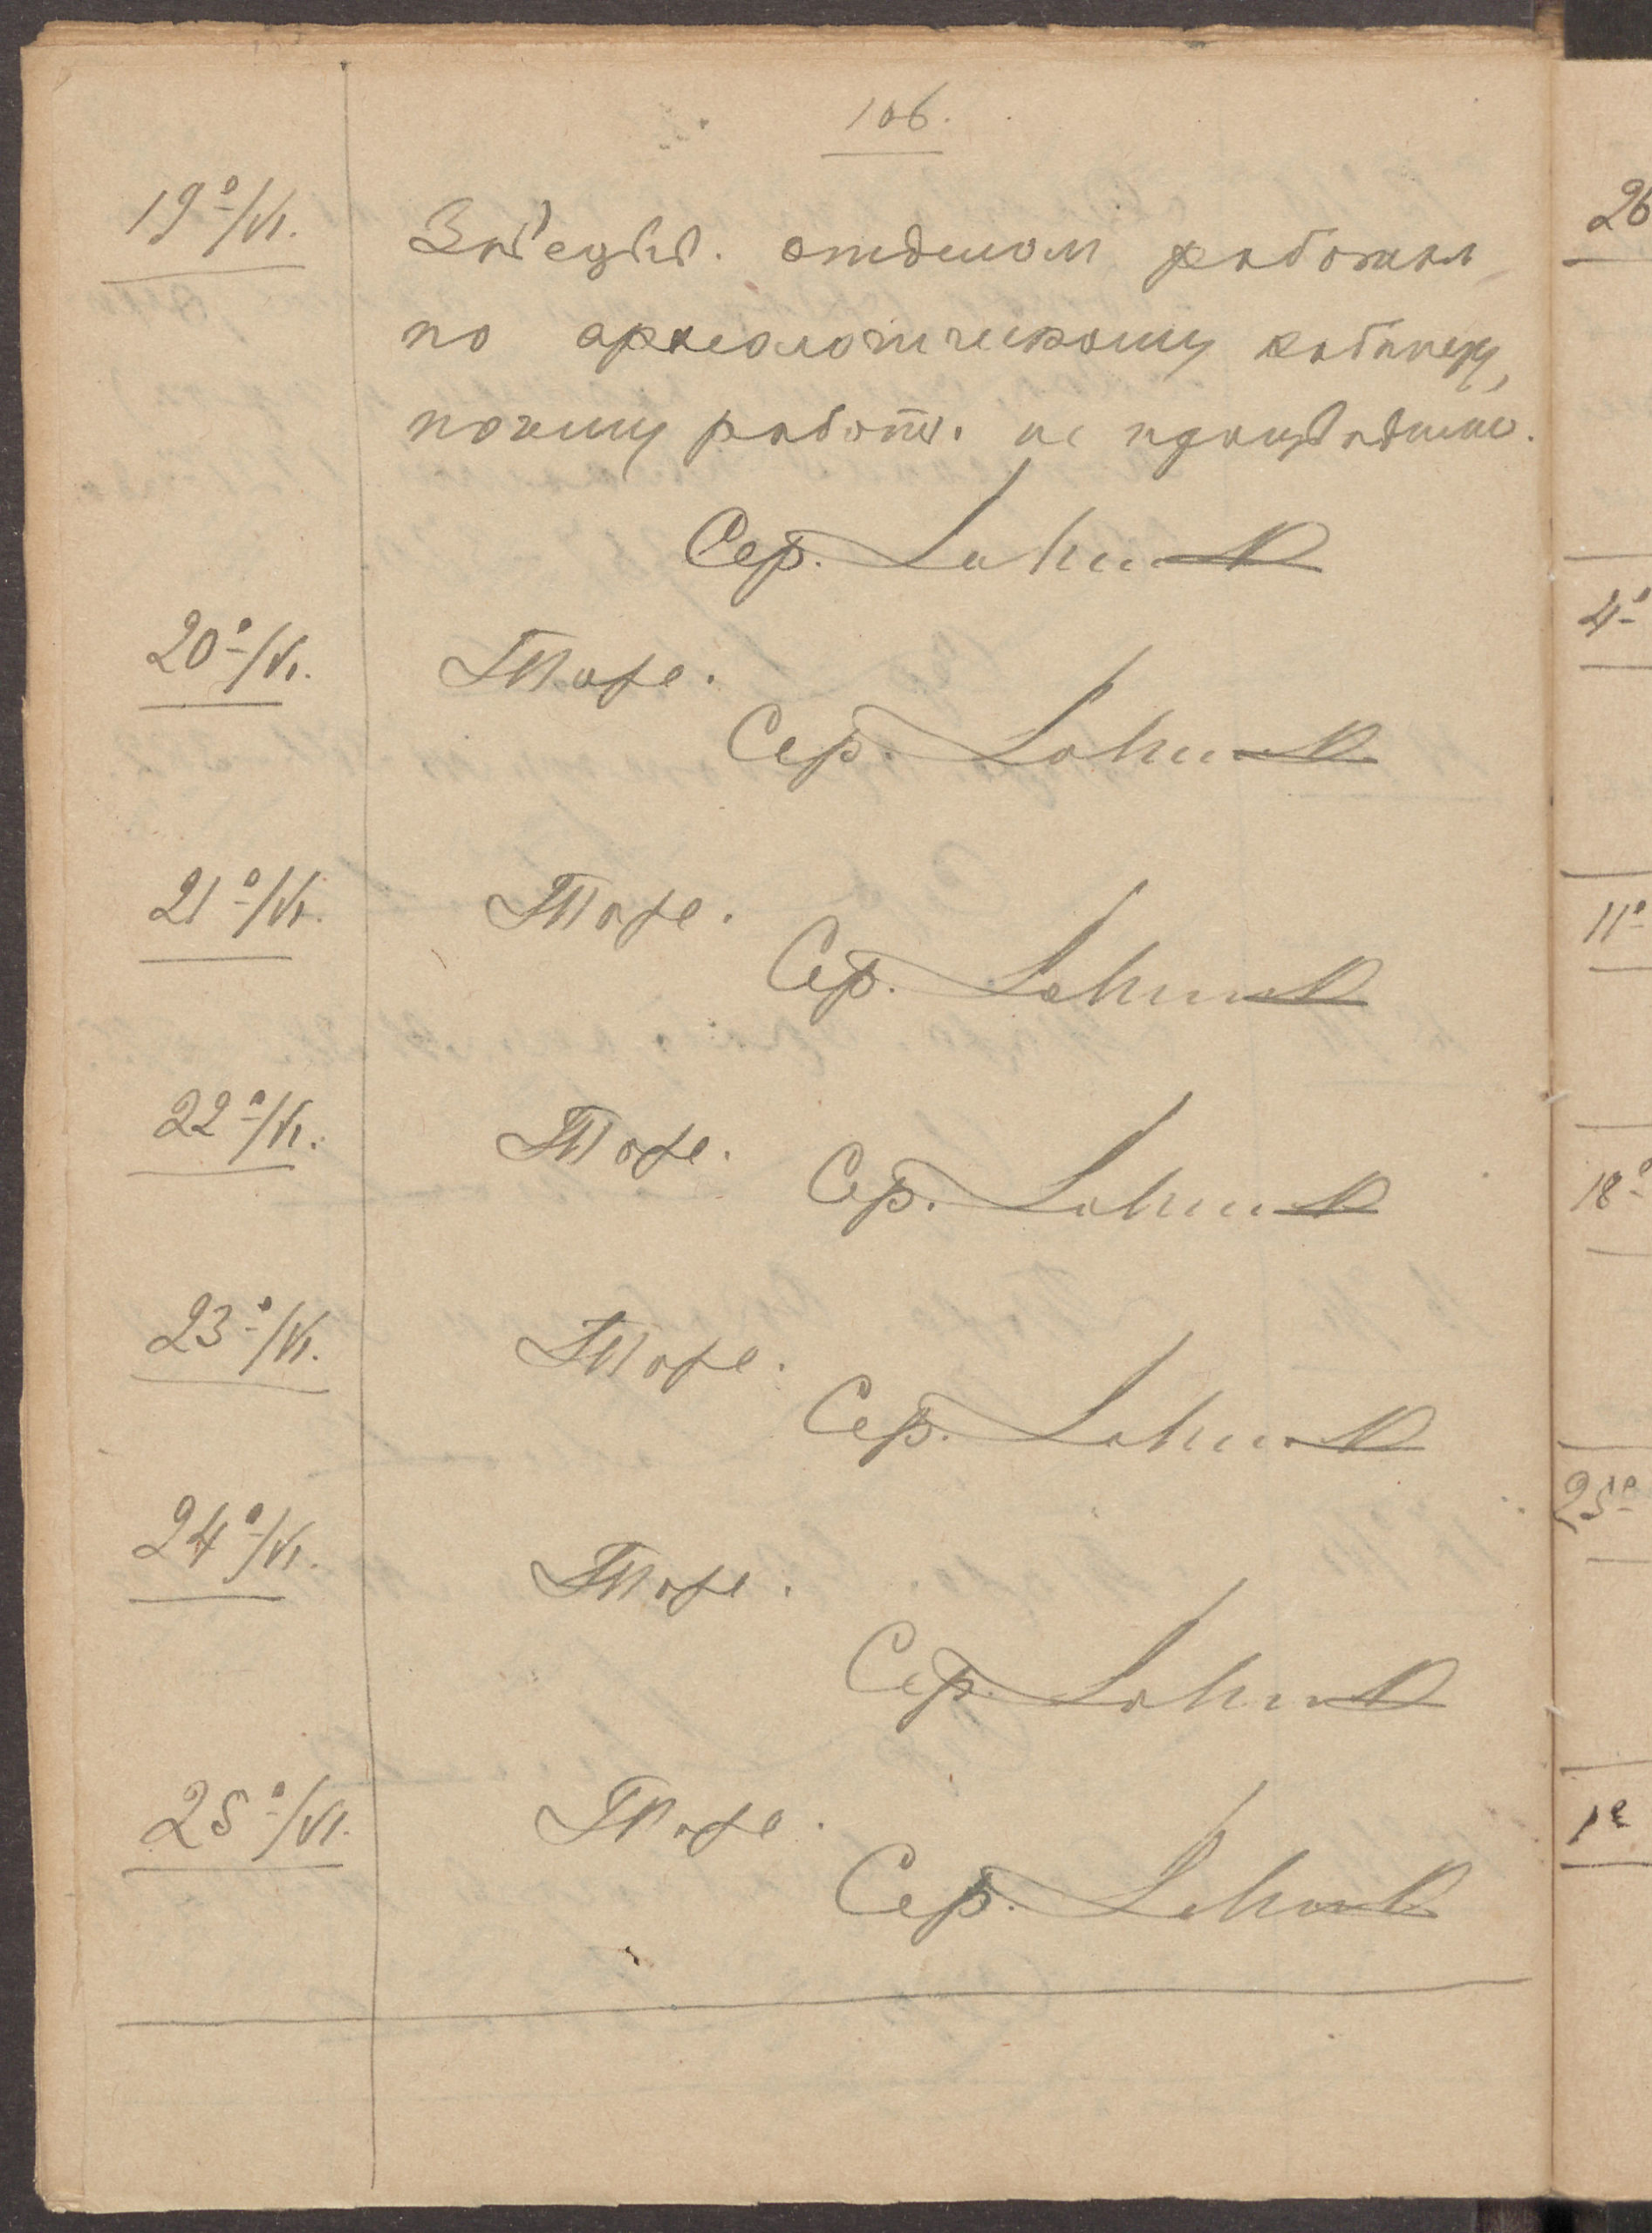 106.
19º/VI.
Завѣдыв. отделом работал
по археологическому кабинету,
почему работы. не
Сер.
20º/VI.
Тоже.
Сер.
21º/VI.
Тоже.
Сер.
22º/VI.
Тоже.
Сер.
23º/VI.
Тоже.
Сер.
24º/VI.
Тоже.
Сер.
25º/VI.
Тоже.
Сер.
26
4º
11º
18º
25º
1º